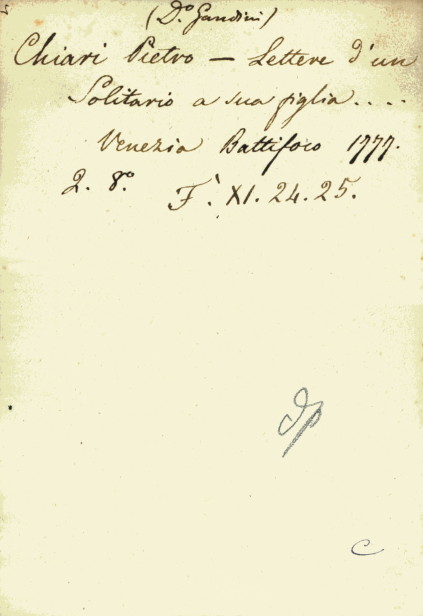 (D.º Gandini)
Chiari Pietro — Lettere d'un
Solitario a sua figlia....
Venezia Battifoco 1777.
2. 8º.
F. XI. 24. 25.
C